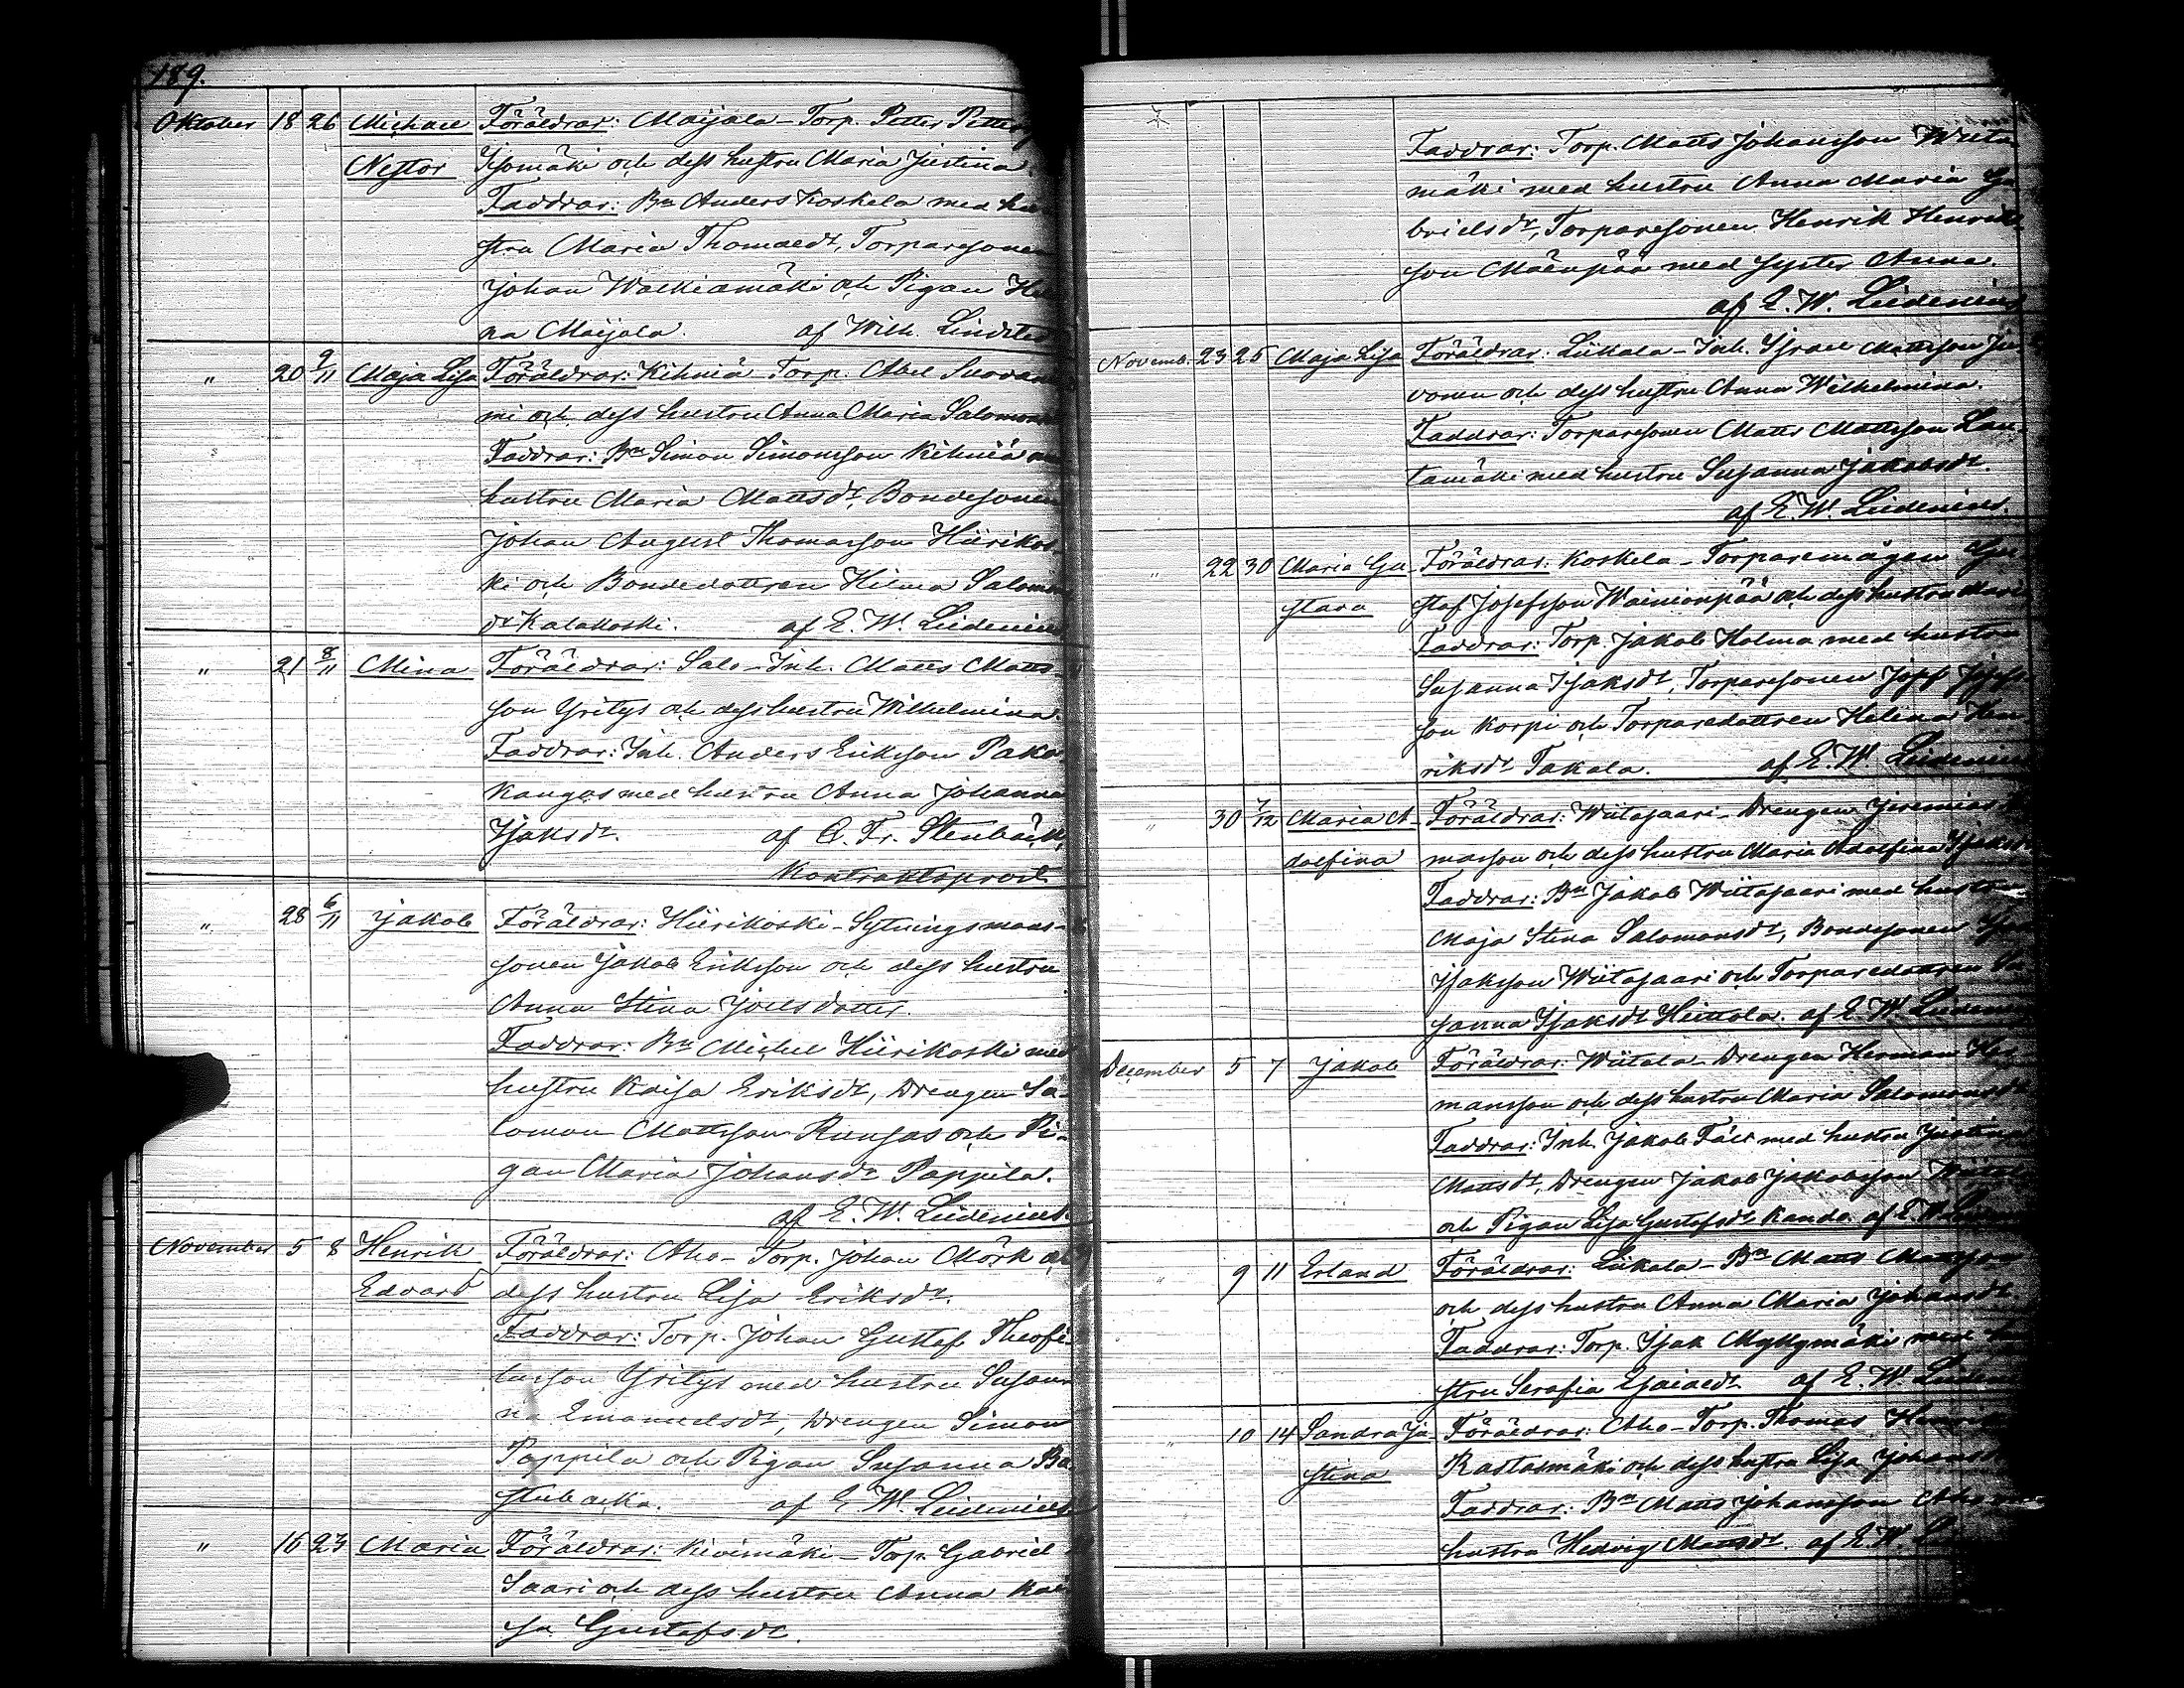 189.
Oktober 18 26 Michael Föräldrar: Maijala - Torp. Petter Petters
Nestor Isomäki och dess hustru Maria Justina.
Faddrar: Bn Anders Koskela med hu-
stru Maria Thomasdr, Torparesonen
Johan Walkiamäki och Pigan He
na Maijala. af Wilh. Lindsted
" 20 9/11 Maja Lisa Föräldrar: Kihniä Torp. Abel Suovan
mi och dess hustru Anna Maria Salomons
Faddrar: Bn Simon Simonsson Kihniä
hustru Maria Mattsdr, Bondesonen
Johan August Thomasson Hiirikos-
ki och Bondedottren Hilma Salomons
dr Kalakoski. af E. W. Lidenius
" 21 8/11 Mina Föräldrar: Salo - Inh. Matts Matts-
son Yritys och dess hustru Wilhelmina.
Faddrar: Inh. Anders Eriksson Pako-
kangas med hustru Anna Johanna
Isaksdr. af C. Fr. Stenbäck,
Kontraktsprost.
" 28 6/11 Jakob Föräldrar: Hiirikoski - Sytningsmans-
sonen Jakob Eriksson och dess hustru
Anna Stina Joelsdotter.
Faddrar: Bn Michel Hiirikoski med
hustru Kaisa Eriksdr, Drengen Sa-
lomon Mattsson Runsas och Pi-
gan Maria Johansdr Pappila.
af E. W. Lidenius
November 5 8 Henrik Föräldrar: Aho - Torp. Johan Mörk och
Edvard dess hustru Lisa Eriksdr.
Faddrar: Torp. Johan Gustaf Theofi-
lusson Yritys med hustru Susan-
na Emanuelsdr, Drengen Simon
Pappila och Pigan Susanna Ba-
stubacka. af E. W. Lidenius
" 16 23 Maria Föräldrar: Kivimäki - Torp. Gabriel
Saari och dess hustru Anna Kai
sa Gustafsdr.
Faddrar: Torp. Matts Johansson Wiita
mäki med hustru Anna Maria Ga-
brielsdr, Torparesonen Henrik Henriks-
son Mäenpää med syster Anna.
af E. W. Lidenius
Novemb. 23 25 Maja Lisa Föräldrar: Liikala - Inh. Israel Mattsson Ju-
vonen och dess hustru Anna Wilhelmina.
Faddrar: Torparesonen Matts Mattsson Lau-
tamäki med hustru Susanna Jakobsdr.
af E. W. Lidenius.
" 22 30 Maria Gu- Föräldrar: Koskela - Torparemågen Gu-
stava staf Josefsson Wainionpää och dess hustru Mari
Faddrar: Torp. Jakob Holma med hustru
Susanna Isaksdr, Torparesonen Josef Josefs-
son Korpi och Torparedottren Helena Hen
riksdr Takala. af E. W. Lidenius
" 30 7/12 Maria A- Föräldrar: Wiitasaari - Drengen Jeremias
dolfina masson och dess hustru Maria Adolfina Isaks
Faddrar: Bn Jakob Wiitasaari med hustru
Maja Stina Salomonsdr, Bondesonen
Isaksson Wiitasaari och Torparedottren Su
sanna Isaksdr Hiittola. af E. W. Lidenius
December 5 7 Jakob Föräldrar: Wiitala - Drengen Herman Her
mansson och dess hustru Maria Salomonsdr
Faddrar: Inh. Jakob Fält med hustru Justina
Mattsdr, Drengen Jakob Jakobsson
och Pigan Lisa Gustafsdr Kanda. af E. W.
" 9 11 Erland Föräldrar: Liikala - Bn Matts Mattsson
och dess hustru Anna Maria Johansdr.
Faddrar: Torp. Isak Mykymäki med hu
stru Serafia Esaiaedr af E. W.
" 10 14 Sandra Ju- Föräldrar: Aho - Torp. Thomas Henriks
stina Rastasmäki och dess hustru Lisa Johansdr
Faddrar: Bn Matts Johansson Aho
hustru Hedvig Mattsdr. af E. W.